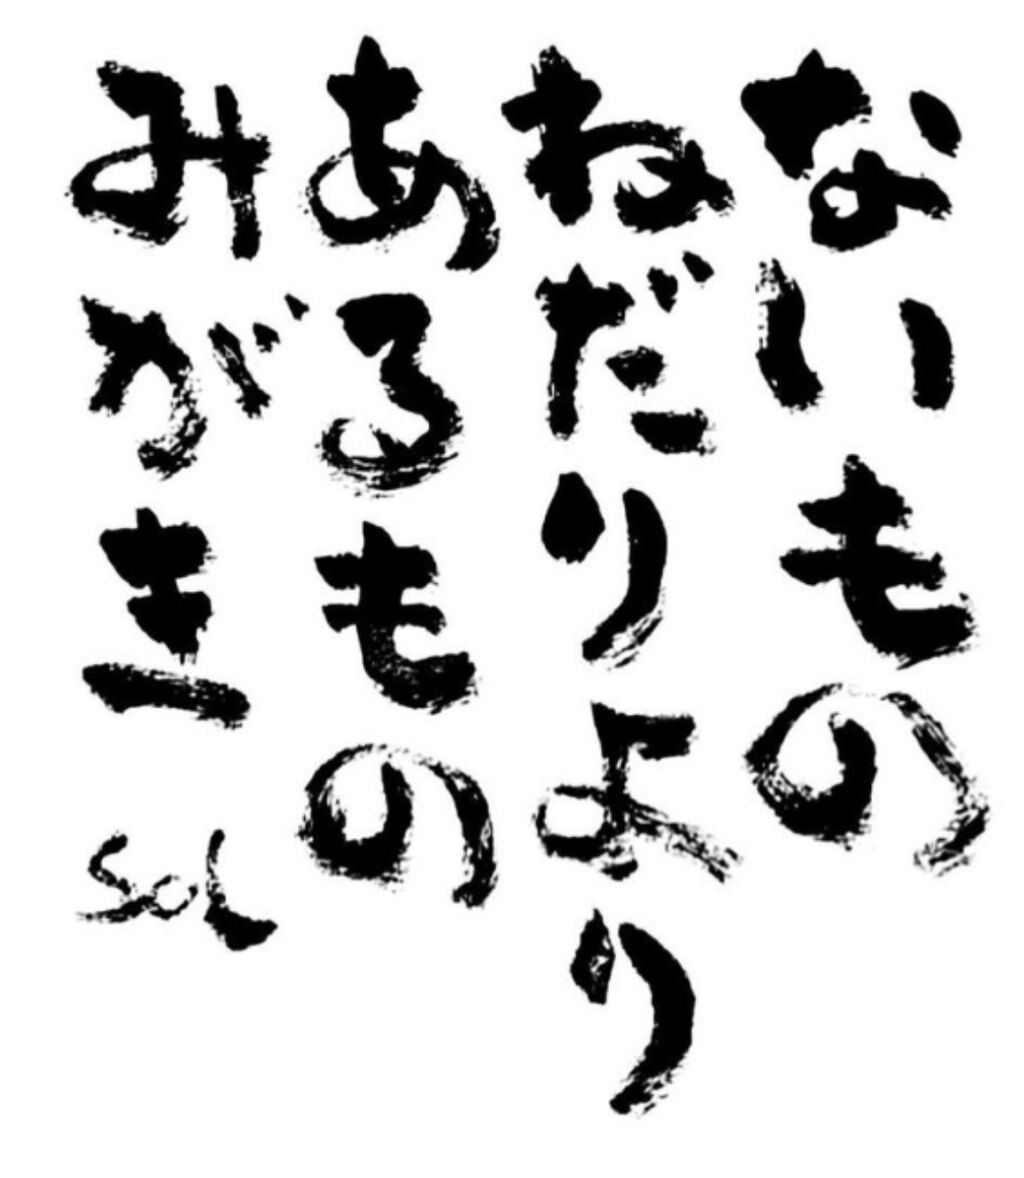 ないもの
ねだりより
あるもの
みがき
sol